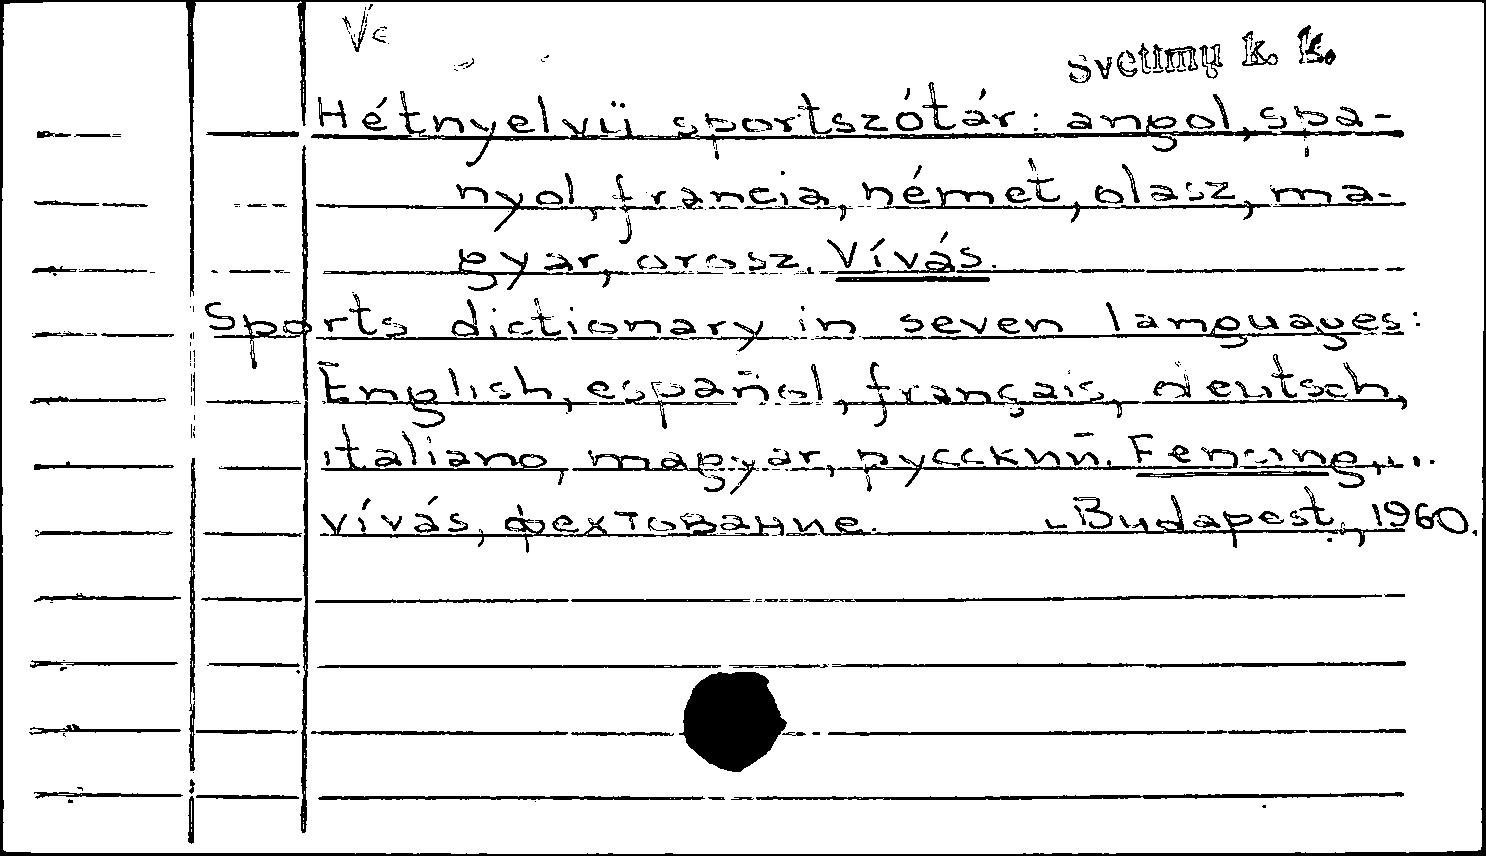 Ve
svetimų k. k.
Hétnyelvü sportszótár: angol, spa-
nyol, francia, német, olasz, ma-
gyar, orosz. Vívás.
Sports dictionary in seven languages:
English, español, français, deutsch,
italiano, magyar, русский. Fencing,...
vívás, фехтование. - Budapest, 1960.